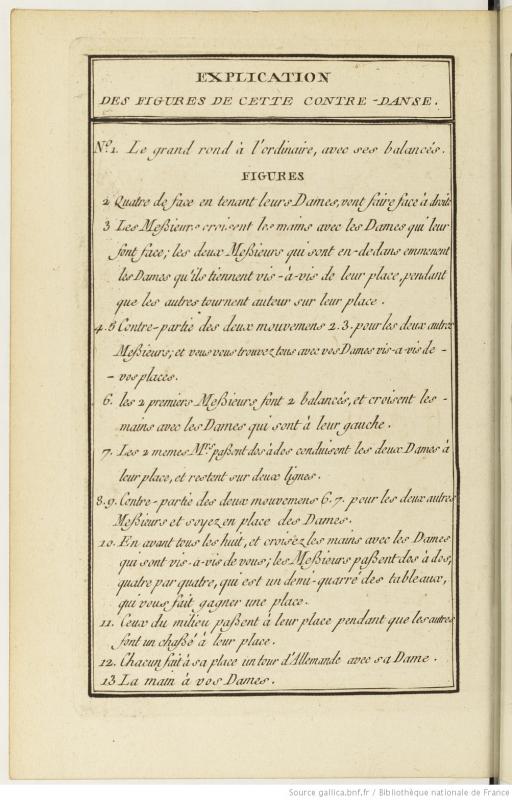 EXPLICATION
DES FIGURES DE CETTE CONTRE-DANSE.
Nº1. Le grand rond à l'ordinaire, avec ses balancés.
FIGURES
2 Quatre de face en tenant leurs Dames, vont faire face à droite
3 Les Meßieurs croisent les mains avec les Dames qui leur
font face; les deux Meßieurs qui sont en-dedans emmenent
les Dames qu'ils tiennent vis-à-vis de leur place, pendant
que les autres tournent autour sur leur place.
4.5 Contre-partie des deux mouvemens 2.3. pour les deux autres
Meßieurs; et vous vous trouvez tous avec vos Dames vis-a-vis de-
- vos places.
6. les 2 premiers Meßieurs font 2 balancés, et croisent les -
mains avec les Dames qui sont à leur gauche.
7. Les 2 memes Mrs paßent dos à dos conduisent les deux Dames à
leur place, et restent sur deux lignes.
8.9. Contre-partie des deux mouvemens 6.7. pour les deux autres
Meßieurs et soyez en place des Dames.
10. En avant tous les huit, et croisez les mains avec les Dames
qui sont vis-a-vis de vous; les Meßieurs paßent dos à dos,
quatre par quatre, qui est un demi-quarré des tableaux,
qui vous fait gagner une place.
11. Ceux du milieu paßent à leur place pendant que les autres
font un chaßé à leur place.
12. Chacun fait à sa place un tour d'Allemande avec sa Dame.
13 La main à vos Dames.
Source gallica.bnf.fr / Bibliothèque nationale de France